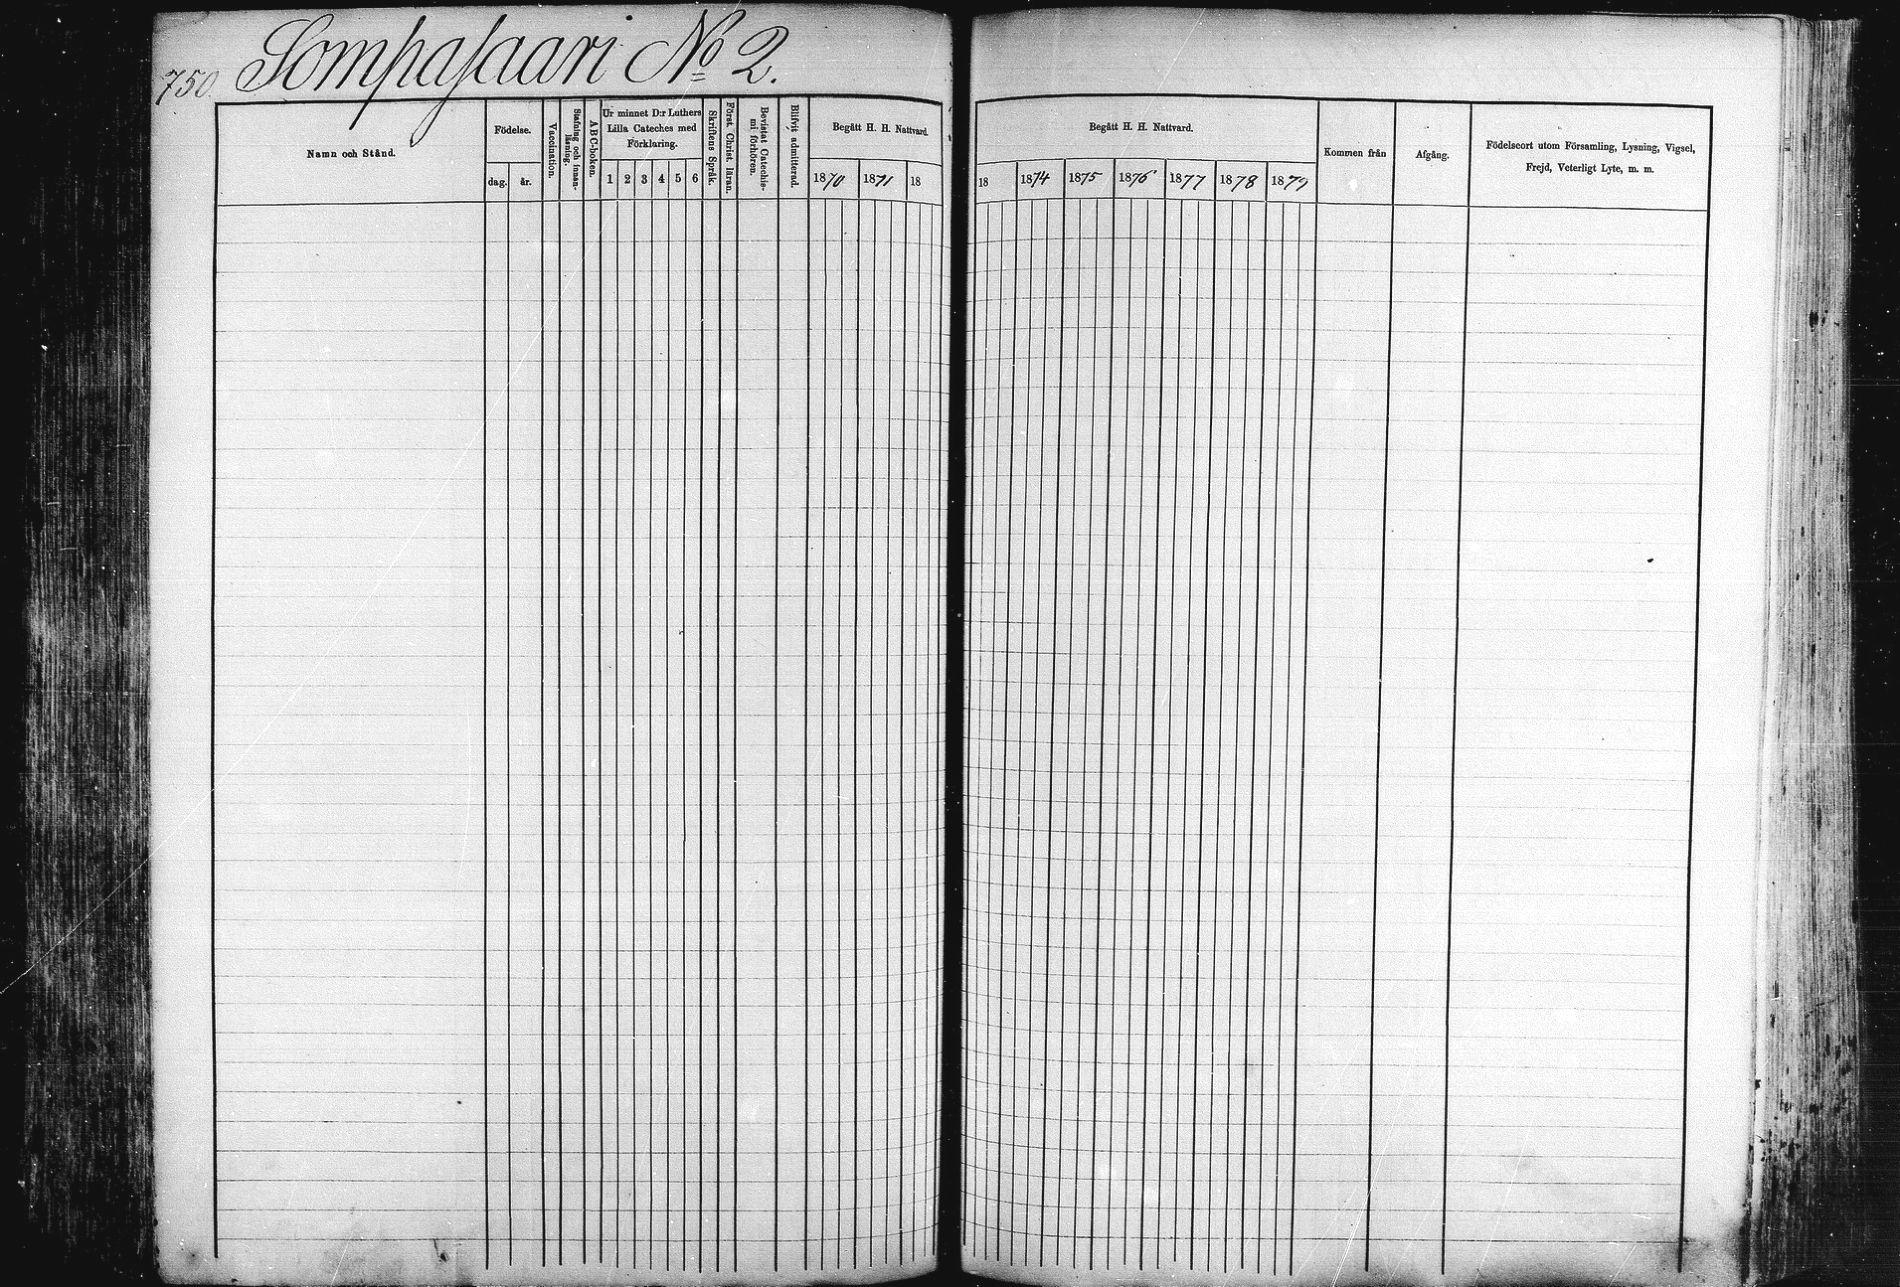 750. Sompasaari No 2.
Namn och Stånd.
Födelse.
dag. år.
Vaccination.
Stafning och innan-
läsning.
ABC-boken.
Ur minnet D:r Luthers
Lilla Cateches med
Förklaring.
1 2 3 4 5 6
Skriftens Språk.
Först. Christ. läran.
Bevistat Catechis-
mi förhören.
Blifvit admitterad.
Begått H. H. Nattvard.
1870 1871 18
Begått H. H. Nattvard.
18 1874 1875 1876 1877 1878 1879
Kommen från
Afgång.
Födelseort utom Församling, Lysning, Vigsel,
Frejd, Veterligt Lyte, m. m.